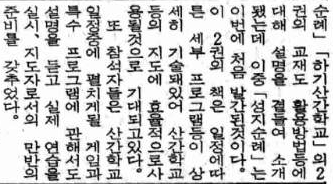 순례」「하기산간학교」의 2
권의 교재도 활용방법등에
대해 설명을 곁들여 소개
됐는데 이중「성지순례」는
이번에 처음 발간된것이다.
이 2권의 책은 일정에따
른 세부 프로그램등이 상
세히 기술돼있어 산간학교
등의 지도에 효율적으로사
용될것으로 기대되고있다.
또 참석자들은 산간학교
일정중에 펼치게될 게임과
특수 프로그램에 관해서도
설명을 듣고 실제 연습을
실시, 지도자로서의 만반의
준비를 갖추었다.